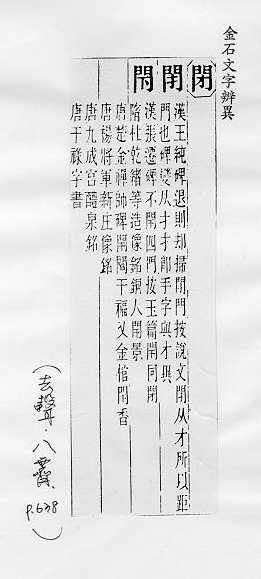 金石文字辨異
閉
閉
閇
漢王純碑退則却掃閉門按說文閉从才所以距
門也碑變从才才卽手字與才異
漢張遷碑不閇四門按玉篇閇同閉
隋杜乾緒等造像銘銅人閇景
唐楚金禪師碑 干福 金棺閇香
唐楊將軍新庄像銘
唐九成宮醴泉銘
唐干祿字書
(去聲・八霽 P.638)